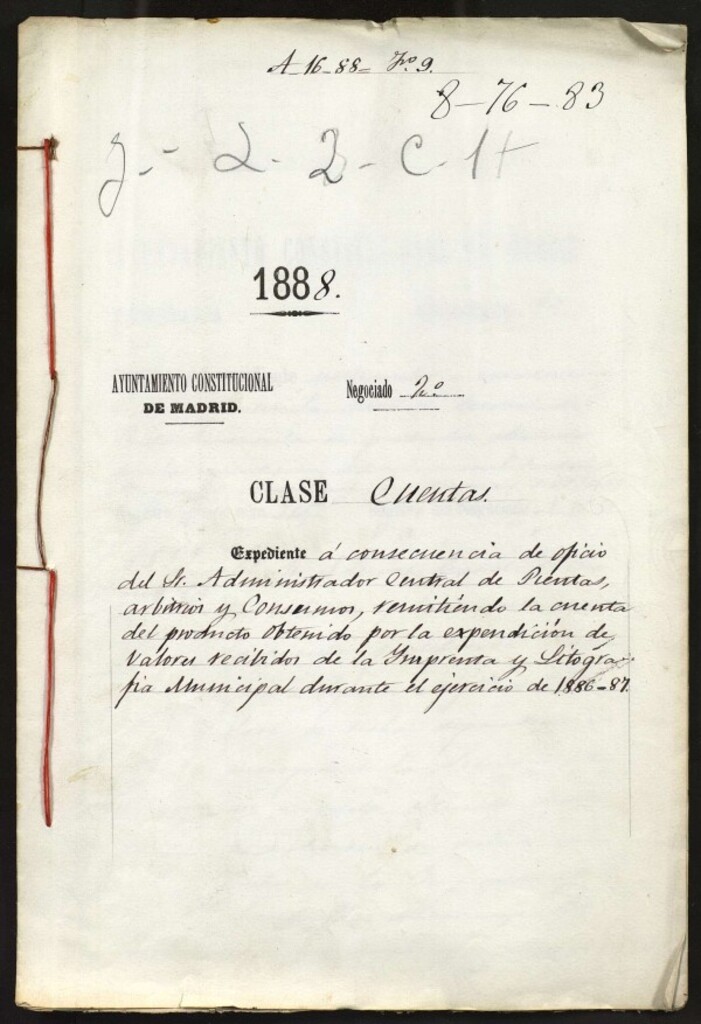 A-16-88- Fº 9.
8-76-83
2-2-C-1
1888.
AYUNTAMIENTO CONSTITUCIONAL
DE MADRID.
Negociado 2º
CLASE Cuentas.
Expediente á consecuencia de oficio
del Sr. Administrador Central de Rentas,
arbitrios y Consumos, remitiendo la cuenta
del producto obtenido por la expendición de
valores recibidos de la Imprenta y Litogra-
fia Municipal durante el ejercicio de 1886-87.